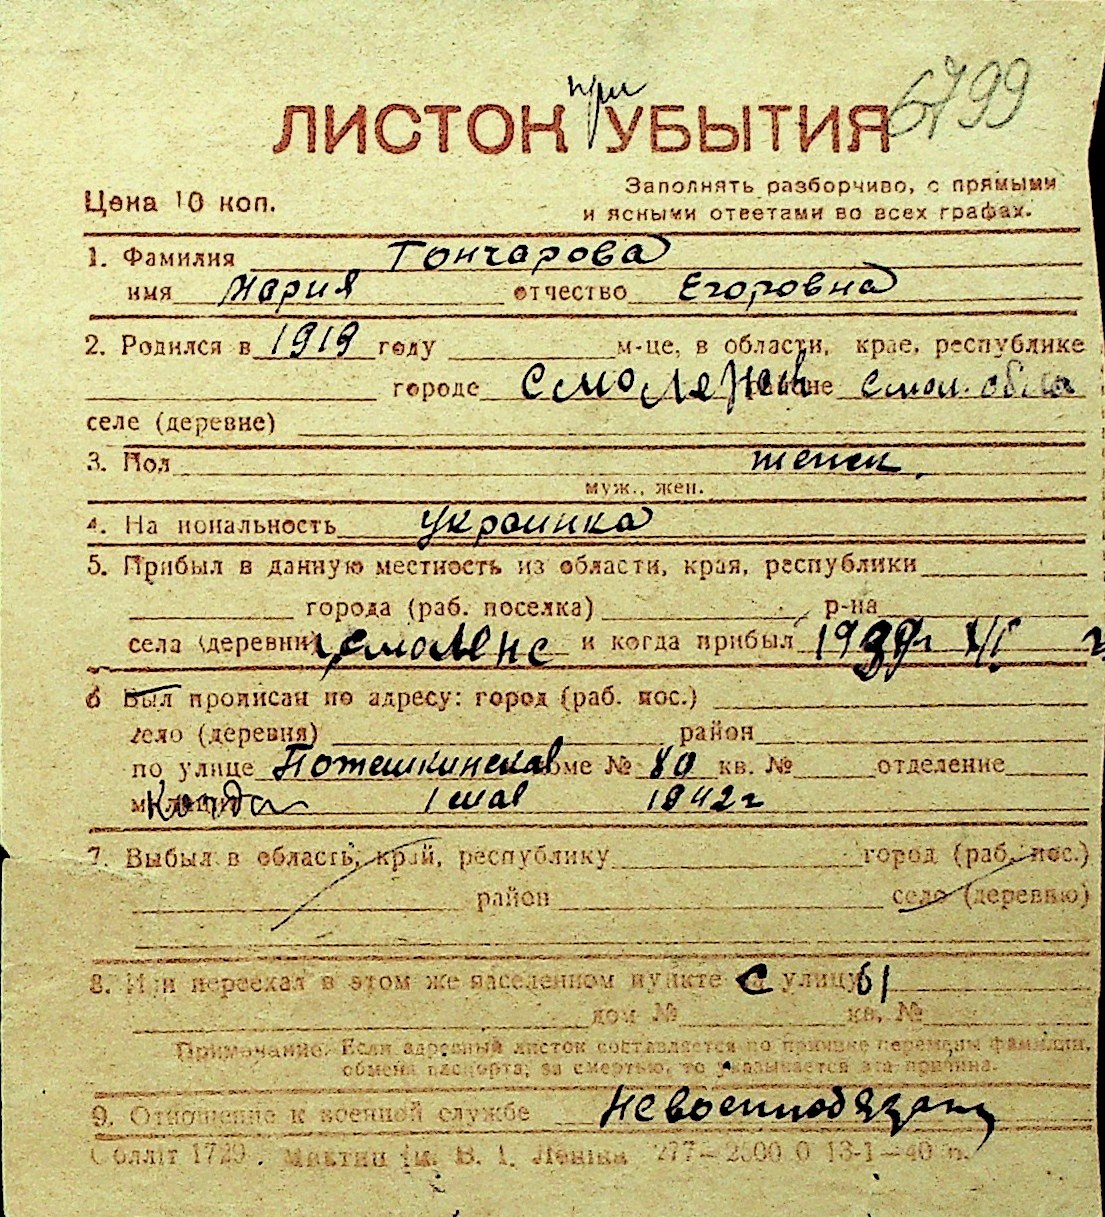 при 6799
ЛИСТОК УБЫТИЯ
Цена 10 коп.
Заполнять разборчиво, с прямыми
и ясными ответами во всех графах.
1. Фамилия Гончарова
имя Мария отчество Егоровна
2. Родился в 1919 году м-це, в области, крае, республике
городе Смоленск районе Смол. обла
селе (деревне)
3. Пол женск.
муж., жен.
4. Национальность Украинка
5. Прибыл в данную местность из области, края, республики
города (раб. поселка) р-на
села (деревни) г. Смоленс и когда прибыл 1939г
6 Был прописан по адресу: город (раб. пос.)
село (деревня) район
по улице доме № 80 кв. № отделение
Когда 1 мая 1942г
7. Выбыл в область, край, республику город (раб. пос.)
район село (деревню)
8. Или переехал в этом же населенном пункте с улицы
дом № кв. №
Примечание. Если адресный листок составляется по причине перемены фамилии,
обмена паспорта, за смертью, то указывается эта причина.
9. Отношение к военной службе Невоеннообязан
Облліт 1729. ім. В. І. Леніна 277—2500 0 13-1—40 п.